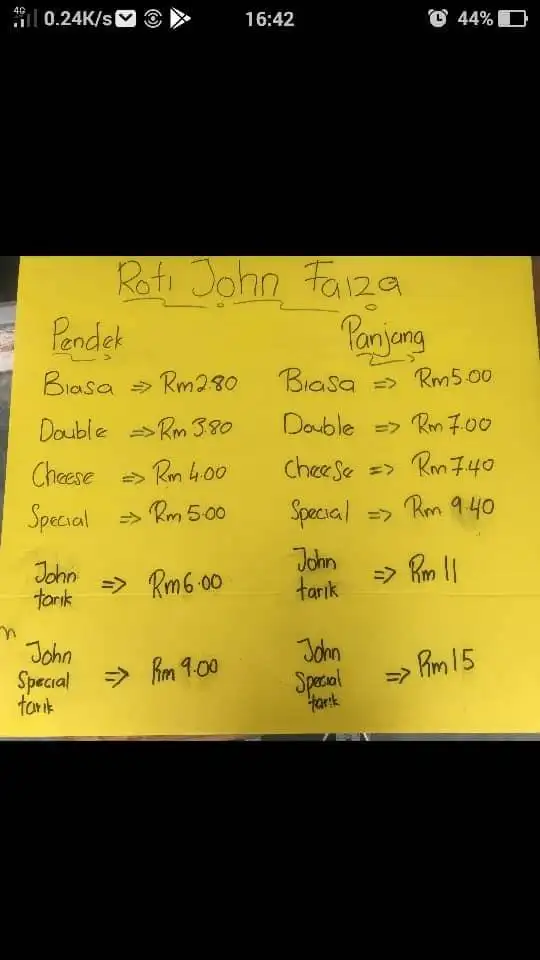 4G
0.24K/s
16:42
44%
Roti John Faiza
Pendek
Biasa => Rm2.80
Double => Rm 3.80
Cheese => Rm 4.00
Special => Rm 5.00
John
tarik => Rm6.00
John
Special
tarik => Rm 9.00
Panjang
Biasa => Rm5.00
Double => Rm 7.00
Cheese => Rm7.40
Special => Rm 9.40
John
tarik => Rm 11
John
Special
tarik => Rm15